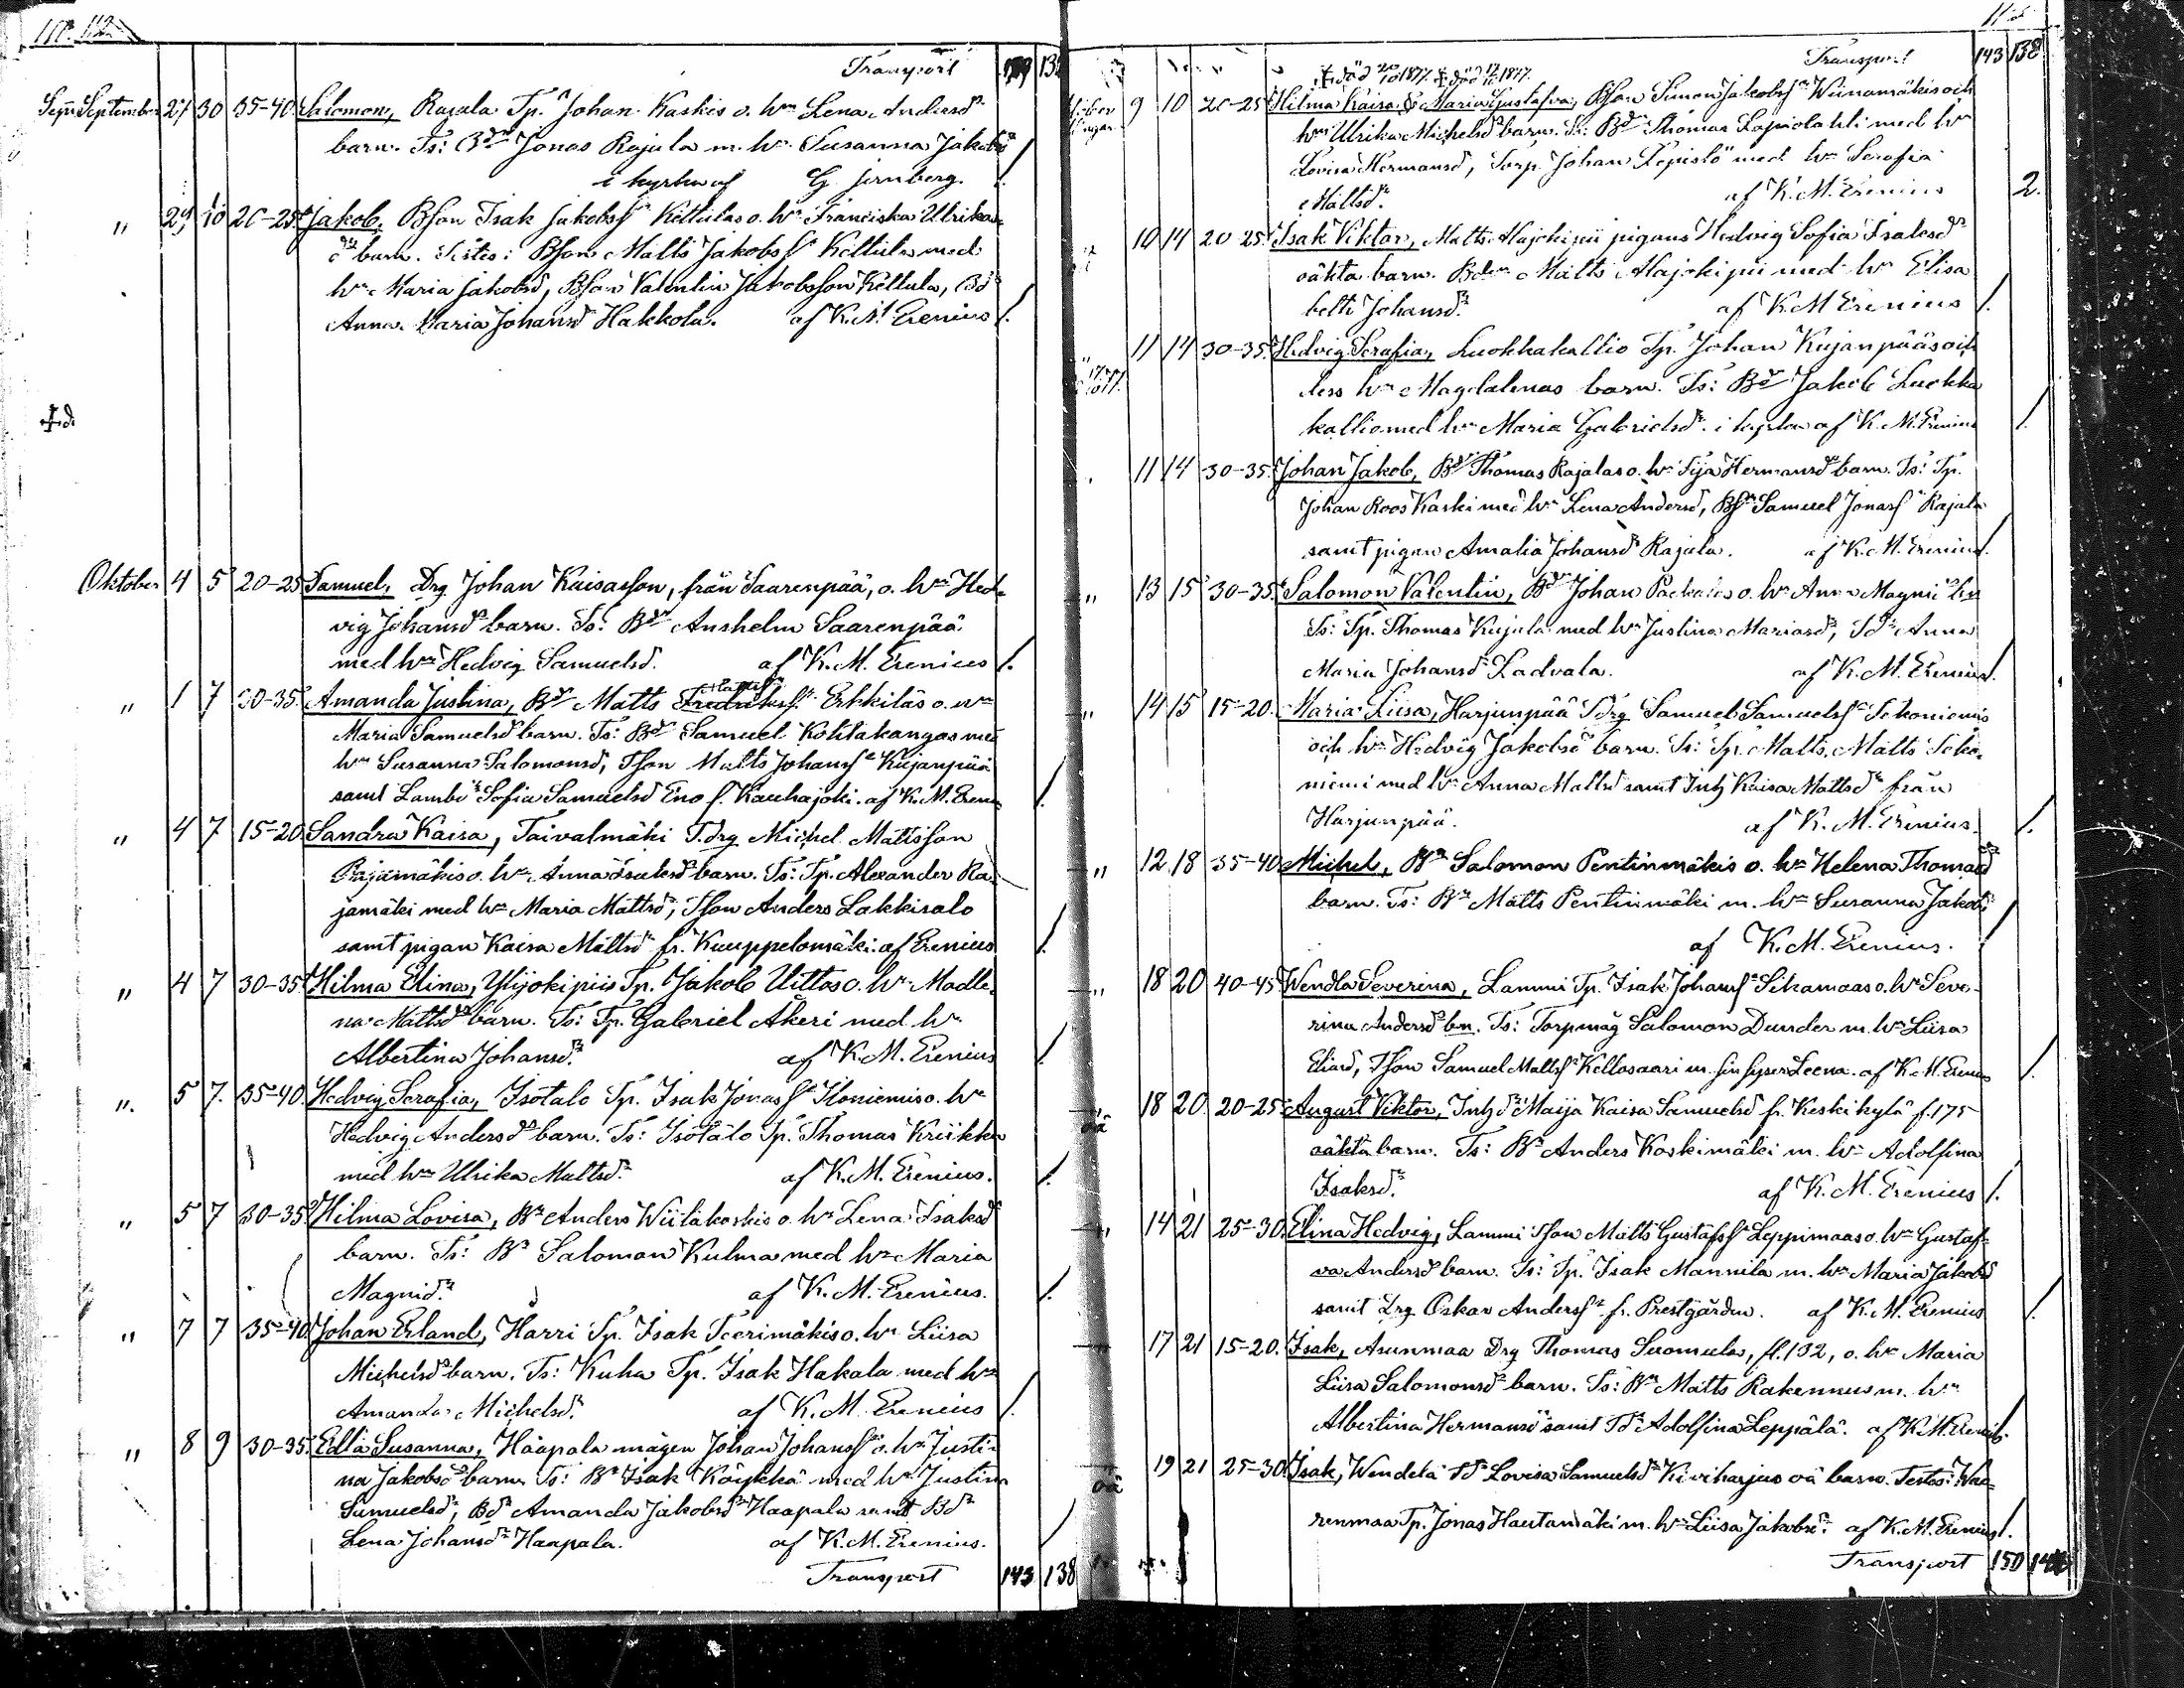 112.
Transport 139 13
September 27 30 35-40. Salomon, Rajala Tp. Johan Kaskis o. hn Lena Andersdr
barn. Ts: Bdn Jonas Rajala m. hn Susanna Jakobsd
i kyrkan af G. Jernberg. /.
" 29 10 20-25. Jakob, Bson Isak Jakobss Kettulas o. hn Franciska Ulrikas
dr barn. Testes: Bson Matts Jakobss Kettula med
hn Maria Jakobsd, Bson Valentin Jakobsson Kettula, Bdr
Anna Maria Johansd Hakkola. af K. M. Erenius /.
Oktober 4 5 20-25 Samuel, Drg Johan Kaisasson, från Saarenpää, o. hn Hed-
vig Johansdr barn. Ts: Bdn Anshelm Saarenpää
med hn Hedvig Samuelsd. af K. M. Erenius /.
" 1 7 30-35. Amanda Justina, Bdn Matts Fredrikss Erkkiläs o. hn
Maria Samuelsd barn. Ts: Bdn Samuel Kohtakangas med
hn Susanna Salomonsd, Tson Matts Johanss Kujanpää
samt Sofia Samuelsd Eno f. Kauhajoki. af K. M. Erenius /.
" 4 7 15-20 Sandra Kaisa, Taivalmäki T.drg Michel Mattsson
Rajamäkis o. hn Anna Isaksd barn. Ts: Tp. Alexander Ra-
jamäki med hn Maria Mattsd, Tson Anders Lakkisalo
samt pigan Kaisa Mattsd fr. Kuuppelomäki. af Erenius /.
" 4 7 30-35. Hilma Elina, Ylijokipiis Tp. Jakob Uittos o. hn Madle-
na Mattsdr barn. Ts: Tp. Gabriel Åkeri med hn
Albertina Johansdr. af K. M. Erenius /
" 5 7. 35-40. Hedvig Serafia, Isotalo Tp. Isak Jonass Iloniemis o. hn
Hedvig Andersdr barn. Ts: Isotalo Tp. Thomas Kriikku
med hn Ulrika Mattsdr. af K. M. Erenius. /.
" 5 7 30-35. Hilma Lovisa, Bn Anders Wiiläkoskis o. hn Lena Isaksd
barn. Ts: Bn Salomon Kulma med hn Maria
Magnidr. af K. M. Erenius. /.
" 7 7 35-40. Johan Erland, Harri Tp. Isak Teerimäkis o. hn Liisa
Michelsdr barn. Ts: Kuha Tp. Isak Hakala med hn
Amanda Michelsdr. af K. M. Erenius /.
" 8 9 30-35. Edla Susanna, Haapala mågen Johan Johanss o. hn Justi-
na Jakobsdr barn. Ts: Bn Isak Köykkä med hn Justina
Samuelsd, Bdr Amanda Jakobsd Haapala samt Bdr
Lena Johansd Haapala. af K. M. Erenius. /
Transport 143 138
Transport 143 138
död 20/10 1877. död 17/ 1877.
9 10 20-25 Hilma Kaisa & Maria Gustafva, Bson Simon Jakobss Wiinamäkis och
hn Ulrika Michelsd barn. Ts: Bdn Thomas Lapiolahti med hn
Lovisa Hermansd, Torp. Johan Lepistö med hn Serafia
Mattsdr. af K. M. Erenius 2.
10 14 20-25. Isak Viktor, Matts Alajokipii pigans Hedvig Sofia Isaksdr
oäkta barn. Bdn Matts Alajokipii med hn Elisa
beth Johansdr. af K. M. Erenius /.
11 14 30-35. Hedvig Serafia, Luokkakallio Tp. Johan Kujanpääs och
dess hn Magdalenas barn. Ts: Bdn Jakob Luokka
kallio med hn Maria Gabrielsdr. i kyrkan af K. M. Erenius /.
11 14 30-35. Johan Jakob, Bdn Thomas Rajalas o. hn Hermansd barn. Ts: Tp.
Johan Roos Kaski med hn Lena Andersd, Bsn Samuel Jonass Rajala
samt pigan Amalia Johansd Rajala. af K. M. Erenius /.
" 13 15 30-35. Salomon Valentin, Bdn Johan Packalas o. hn Anna Magnidr bn
Ts: Tp. Thomas Kujala med hn Justina Mariasd, Tdr Anna
Maria Johansd Ladvala. af K. M. Erenius /.
" 14 15 15-20. Maria Liisa, Harjunpää Tdrg Samuel Samuelss Sikoniemis
och hn Hedvig Jakobsd barn. Ts: Tp. Matts Matts Siko-
niemi med hn Anna Mattsd samt Inhs Kaisa Mattsdr från
Harjunpää. af K. M. Erenius. /.
" 12 18 35-40 Michel, Bn Salomon Pentinmäkis o. hn Helena Thomasd
barn. Ts: Bn Matts Pentinmäki m. hn Susanna Jakobsd
af K. M. Erenius. /
" 18 20 40-45 Wendla Severina, Lammi Tp. Isak Johanss Sikamaas o. hn Seve-
rina Andersd bn. Ts: Torpmåg Salomon Dunder m. hn Liisa
Eliasd, Tson Samuel Mattss Keltosaari m. sin syster Leena. af K. M. Erenius /.
oä 18 20. 20-25. August Viktor, Inhsdr Maija Kaisa Samuelsd fr. Keskikylä f. 175
oäkta barn. Ts: Bn Anders Koskimäki m. hn Adolfina
Isaksdr. af K. M. Erenius /.
" 14 21 25-30. Elina Hedvig, Lammi Tson Matts Gustafss Leppimaas o. hn Gustaf-
va Andersd barn. Ts: Tp. Isak Mannila m. hn Maria Jakobsd
samt Drg Oskar Anderss fr. Prestgården. af K. M. Erenius /.
17 21 15-20. Isak, Asunmaa Drg Thomas Suomelas, fl. 132, o. hn Maria
Liisa Salomonsdr barn. Ts: Bn Matts Rakennus m. hn
Albertina Hermansd samt Tdr Adolfina Leppälä. af K. M. Erenius.
oä 19 21 25-30. Isak, Wendelä Tdr Lovisa Samuelsdr Kiviharjus oä barn. Testes: Waa-
renmaa Tp. Jonas Hautamäki m. hn Liisa Jakobsdr. af K. M. Erenius /.
Transport 150 14